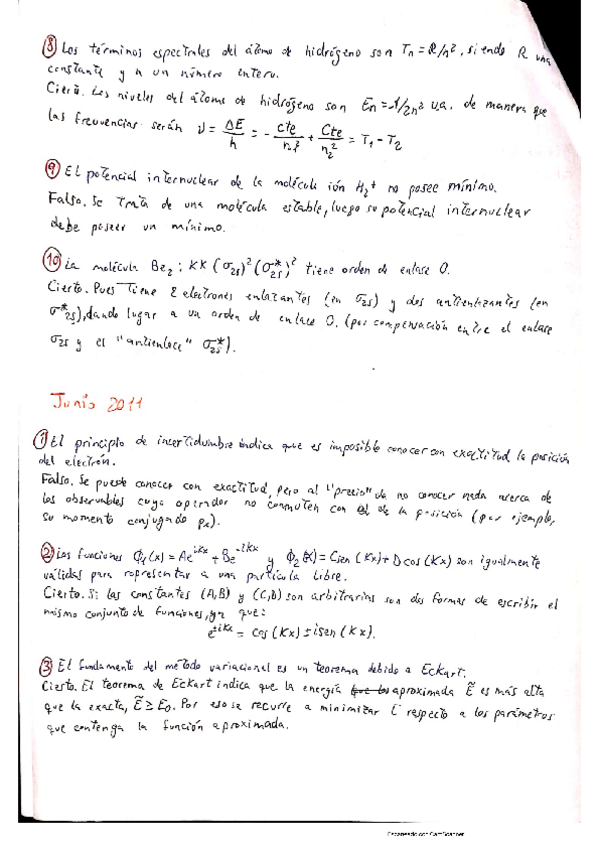 ⑧ Los términos espectrales del átomo de hidrógeno son Tn = R/n², siendo R una
constante y n un número entero.
Cierto. Los niveles del átomo de hidrógeno son En = -1/2n² u.a. de manera que
las frecuencias serán ν = ΔE/h = - cte/n₁² + Cte/n₂² = T₁ - T₂
⑨ El potencial internuclear de la molécula ión H₂⁺ no posee mínimo.
Falso. Se trata de una molécula estable, luego su potencial internuclear
debe poseer un mínimo.
⑩ La molécula Be₂: KK (σ₂s)² (σ₂s*)² tiene orden de enlace 0.
Cierto. Pues tiene 2 electrones enlazantes (en σ₂s) y dos antienlazantes (en
σ*₂s), dando lugar a un orden de enlace 0. (por compensación entre el enlace
σ₂s y el "antienlace" σ₂s*).
Junio 2011
① El principio de incertidumbre indica que es imposible conocer con exactitud la posición
del electrón.
Falso. Se puede conocer con exactitud, pero al "precio" de no conocer nada acerca de
los observables cuyo operador no conmuten con el de la posición (por ejemplo,
su momento conjugado pₓ).
② Las funciones ϕ₁(x) = Ae^iKx + Be^-iKx y ϕ₂(x) = C sen(Kx) + D cos(Kx) son igualmente
válidas para representar a una partícula libre.
Cierto. Si las constantes (A,B) y (C,D) son arbitrarias son dos formas de escribir el
mismo conjunto de funciones, ya que:
e^±iKx = cos(Kx) ± i sen(Kx).
③ El fundamento del método variacional es un teorema debido a Eckart.
Cierto. El teorema de Eckart indica que la energía aproximada Ẽ es más alta
que la exacta, Ẽ ≥ E₀. Por eso se recurre a minimizar Ẽ respecto a los parámetros
que contenga la función aproximada.
Escaneado con CamScanner